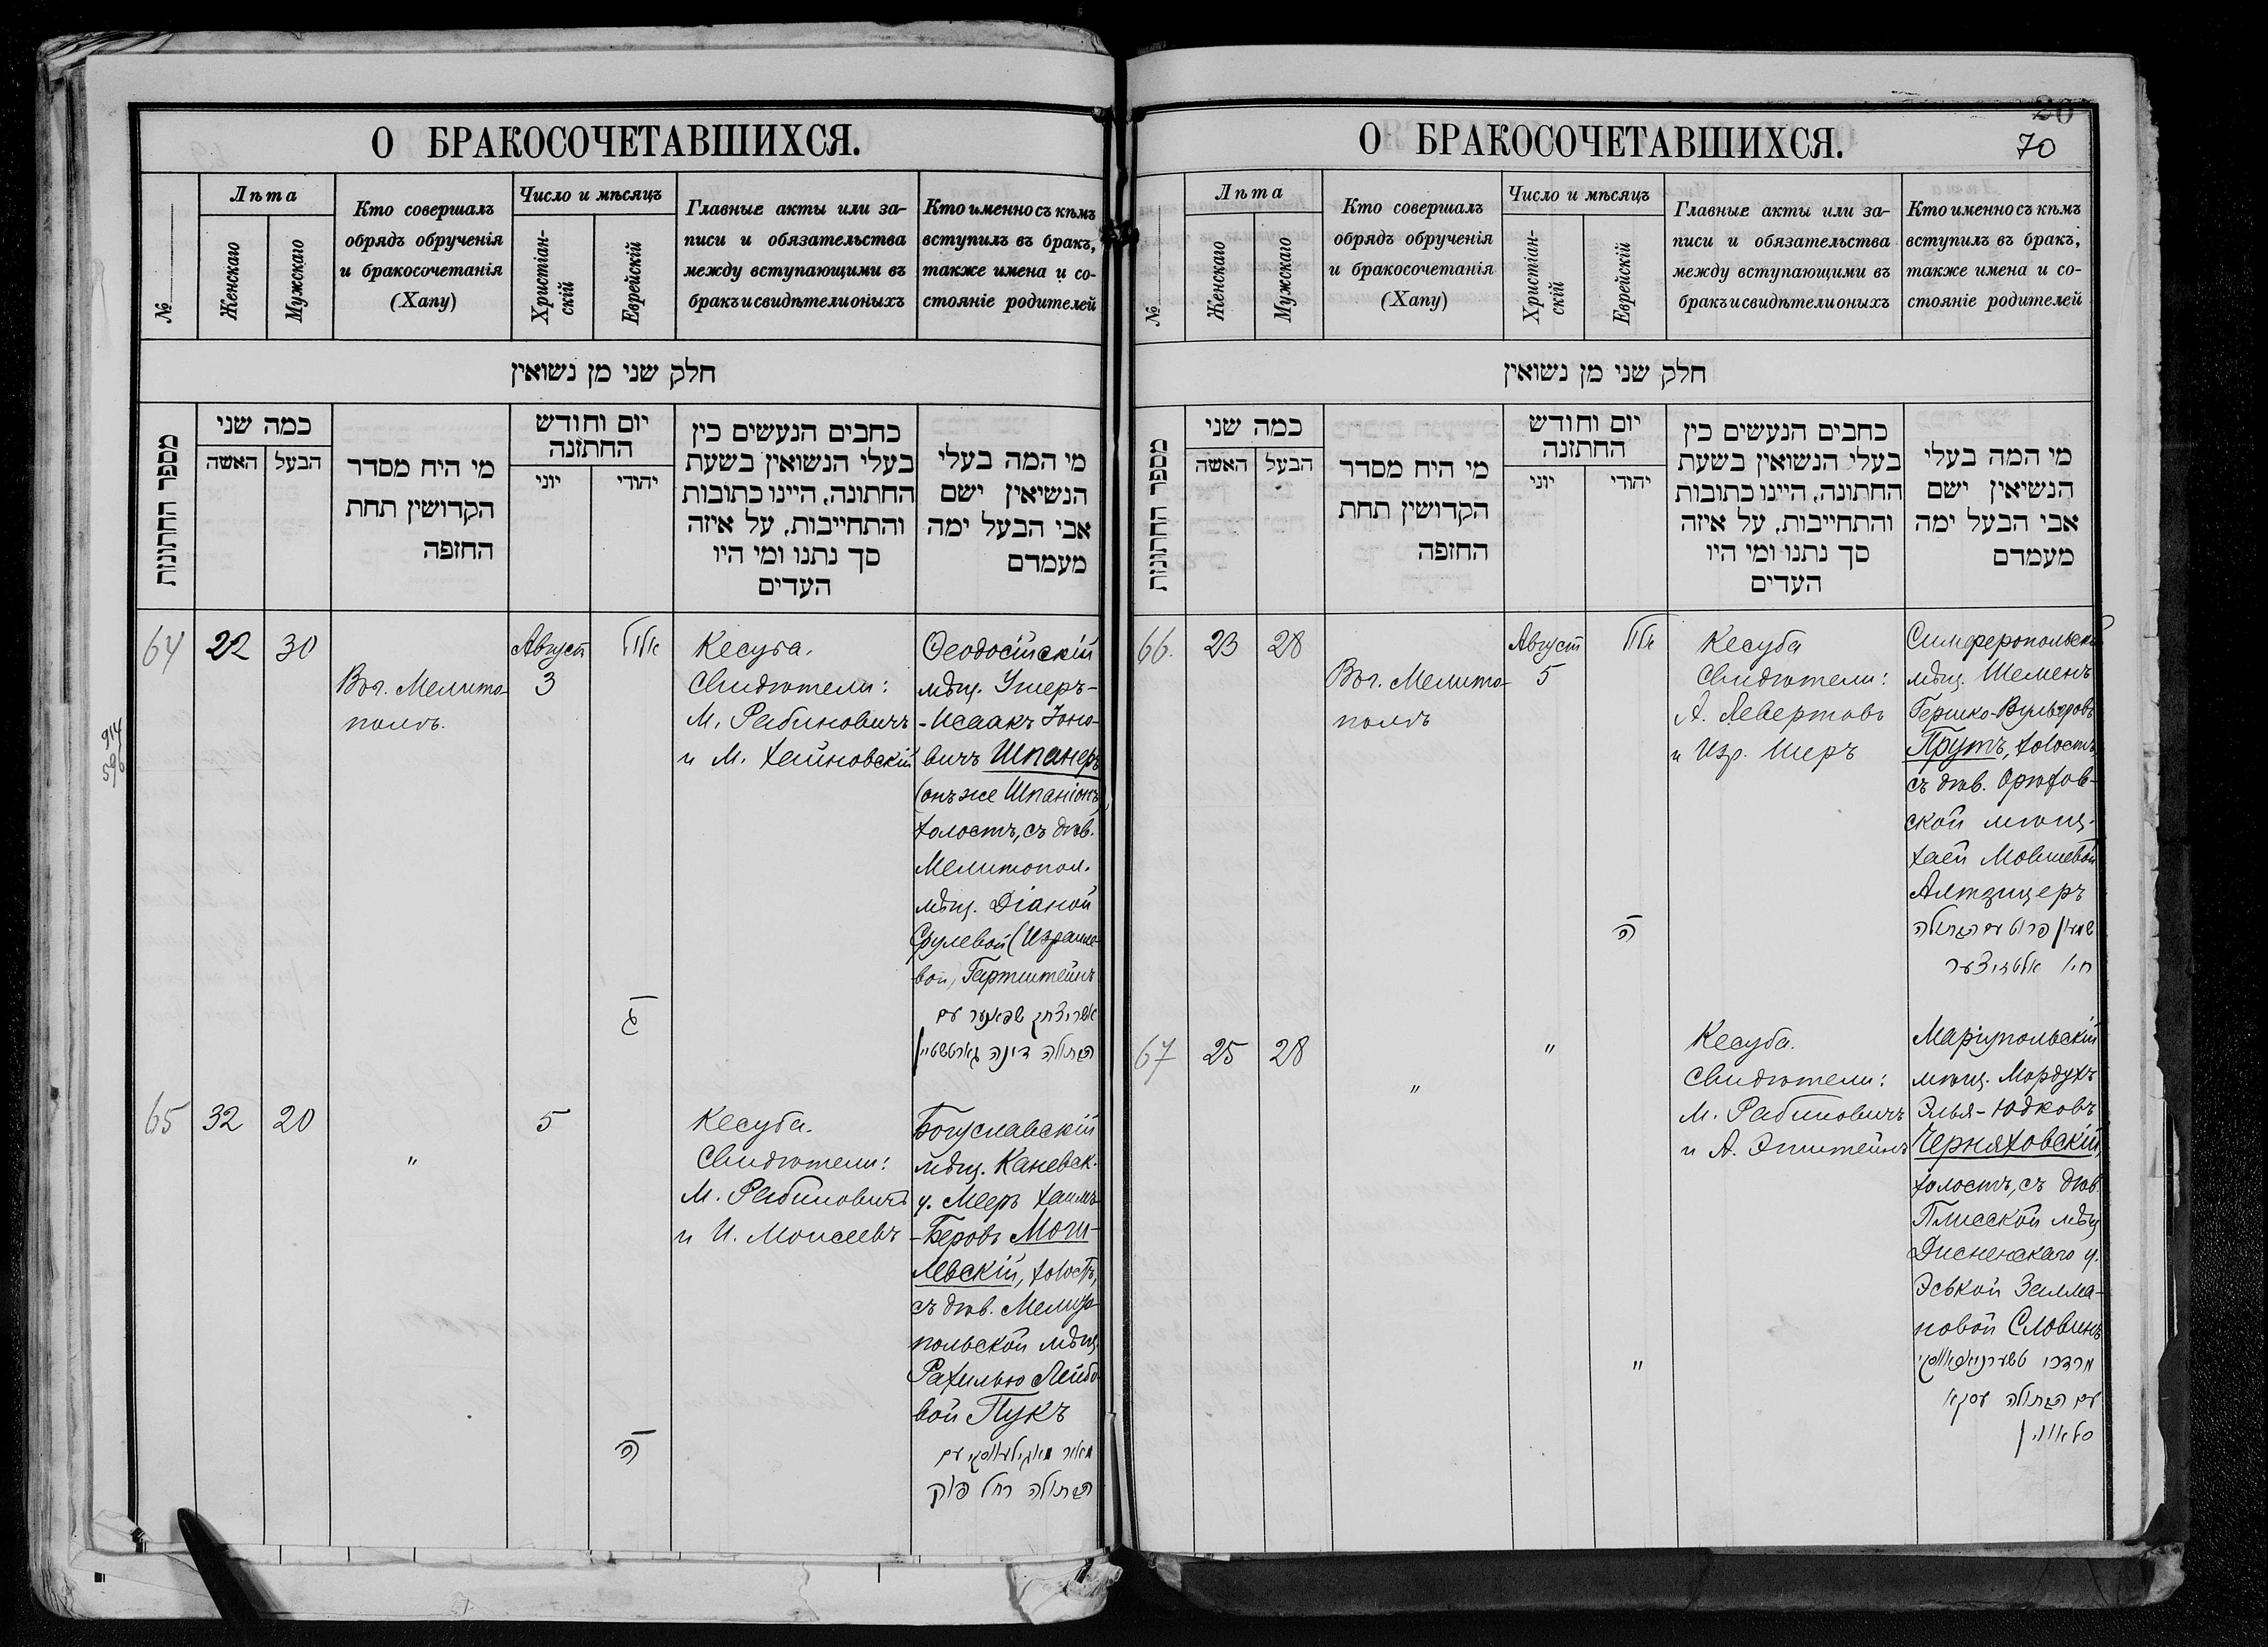 О БРАКОСОЧЕТАВШИХСЯ.
№
Лѣта
Женскаго
Мужскаго
Кто совершалъ
обрядъ обрученія
и бракосочетанія
(Хапу)
Число и мѣсяцъ
Христіан-
скій
Еврейскій
Главные акты или за-
писи и обязательства
между вступающими въ
бракъ и свидѣтели оныхъ
Кто именно съ кѣмъ
вступилъ въ бракъ,
также имена и со-
стояніе родителей
חלק שני מן נשואין
מספר החתונות
כמה שני
האשה
הבעל
מי היח מסדר
הקדושין תחת
החזפה
יום וחודש
החתזנה
יוני
יהודי
כחבים הנעשים כין
בעלי הנשואין בשעת
החתונה, היינו כתובות
והתחייבות, על איזה
סך נתנו ומי היו
העדים
מי המה בעלי
הנשיאין ישם
אבי הבעל ימה
מעמדם
914
596
64
22
30
Воз. Мелито-
поль.
Август
3
אלול
ג
Кесуба.
Свидѣтели:
М. Рабиновичъ
и М. Хайновскій
Ѳеодосійскій
мѣщ. Ушеръ-
-Исаакъ Іоно-
вичъ Шпанеръ
(онъ же Шпаніонъ)
холостъ, съ дѣв.
Мелитопол.
мѣщ. Діаной
Срулевой (Израиле-
вой) Гартштейнъ
אשר יצחק שפאנער עם
הבתולה דינה גארטשטיין
65
32
20
"
5
ה
Кесуба.
Свидѣтели:
М. Рабиновичъ
и И. Моисеевъ
Богуславскій
мѣщ. Каневск.
у. Мееръ Хаимъ-
-Беровъ Моги-
левскій, холостъ,
съ дѣв. Мелито-
польской мѣщ.
Рахилью Лейбо-
вой Пукъ
מאיר מאגילעווסקי עם
הבתולה רחל פוק
О БРАКОСОЧЕТАВШИХСЯ.
20
70
№
Лѣта
Женскаго
Мужскаго
Кто совершалъ
обрядъ обрученія
и бракосочетанія
(Хапу)
Число и мѣсяцъ
Христіан-
скій
Еврейскій
Главные акты или за-
писи и обязательства
между вступающими въ
бракъ и свидѣтели оныхъ
Кто именно съ кѣмъ
вступилъ въ бракъ,
также имена и со-
стояніе родителей
חלק שני מן נשואין
מספר החתונות
כמה שני
האשה
הבעל
מי היח מסדר
הקדושין תחת
החזפה
יום וחודש
החתזנה
יוני
יהודי
כחבים הנעשים כין
בעלי הנשואין בשעת
החתונה, היינו כתובות
והתחייבות, על איזה
סך נתנו ומי היו
העדים
מי המה בעלי
הנשיאין ישם
אבי הבעל ימה
מעמדם
66.
23
28
Воз. Мелито-
поль
Август
5
אלול
ה
Кесуба
Свидѣтели:
А. Левертовъ
и Изр. Шеръ
Симферопольскій
мѣщ. Шеменъ
Гершко-Вульфовъ
Прутъ, холостъ,
съ дѣв. Орѣхов-
ской мѣщ.
Хаей Мовшевой
Алтзицеръ
שמעון פרוט עם הבתולה
חיה אלטזיצער
67
25
28
"
"
"
Кесуба.
Свидѣтели:
М. Рабиновичъ
и А. Эпштейнъ
Маріупольскій
мѣщ. Мордухъ
Элья-Юдковъ
Черняховскій,
холостъ, съ дѣв.
Плисской мѣщ.
Дисненскаго у.
Эськой Залма-
новой Словинъ
מרדכי טשערניאחאווסקי
עם הבתולה עסקא
סלאווין